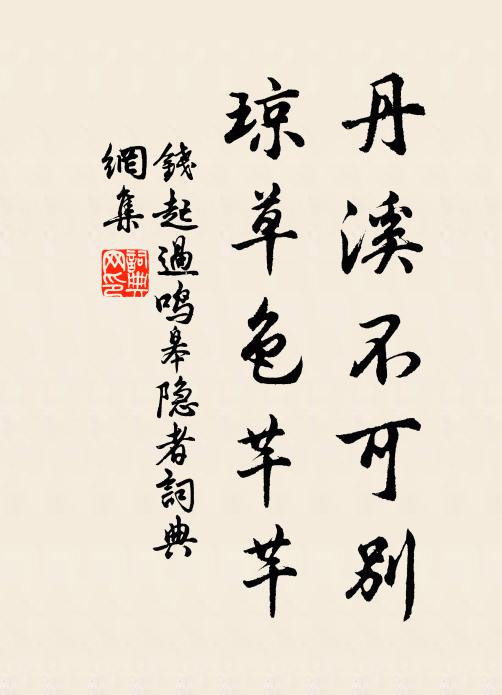 丹溪不可别
琼草色芊芊
錢起過鳴皋隐者詞典
網集
詞典网印